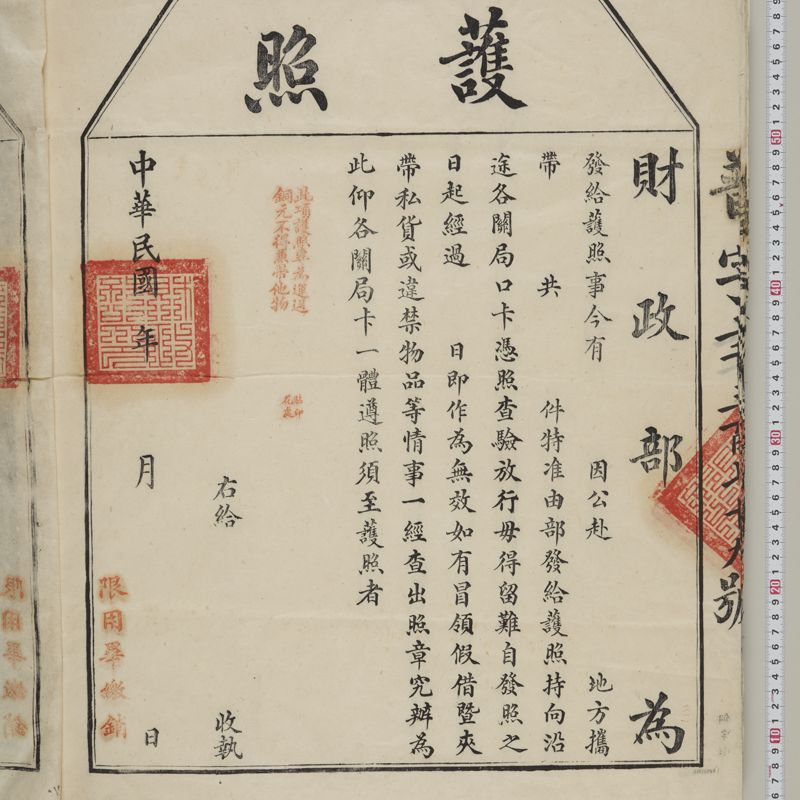 護照
財政部為
發給護照事今有 因公赴 地方攜
帶 共 件特准由部發給護照持向沿
途各關局口卡憑照查驗放行毋得留難自發照之
日起經過 日即作為無效如有冒領假借暨夾
帶私貨或違禁物品等情事一經查出照章究辦為
此仰各關局卡一體遵照須至護照者
此項護照專為運送
銅元不得兼帶他物
右給 收執
中華民國 年 月 日
限用畢繳銷